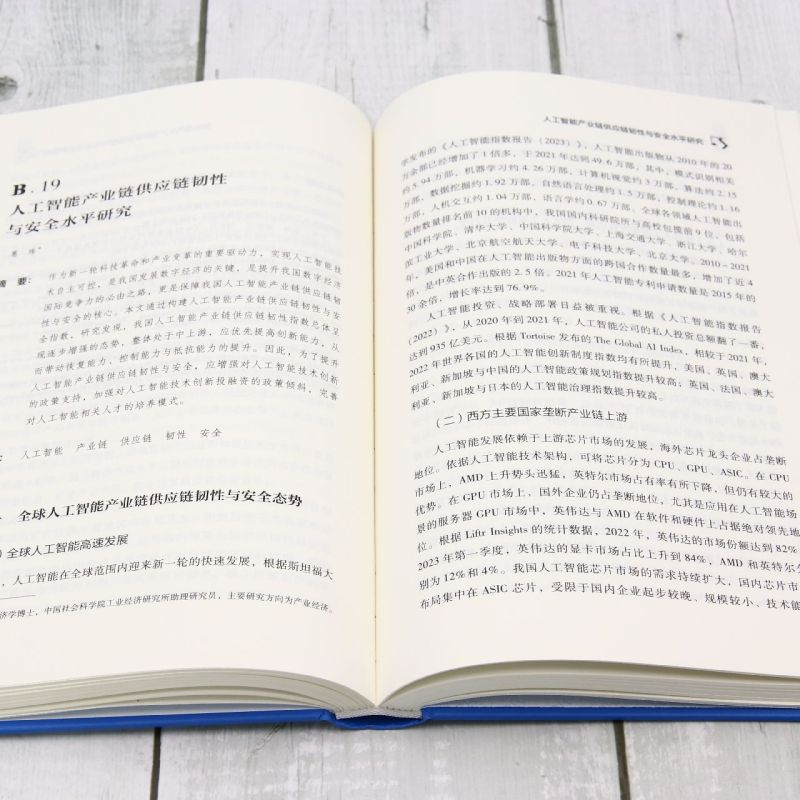 B.19
人工智能产业链供应链韧性
与安全水平研究
葛 伟*
摘 要: 作为新一轮科技革命和产业变革的重要驱动力,实现人工智能技
术自主可控,是我国发展数字经济的关键,是提升我国数字经济
国际竞争力的必由之路,更是保障我国人工智能产业链供应链韧
性与安全的核心。本文通过构建人工智能产业链供应链韧性与安
全指数,研究发现,我国人工智能产业链供应链韧性指数总体呈
现逐步增强的态势,整体处于中上游,应优先提高创新能力,从
而带动恢复能力、控制能力与抵抗能力的提升。因此,为了提升
人工智能产业链供应链韧性与安全,应增强对人工智能技术创新
的政策支持,加强对人工智能技术创新投融资的政策倾斜,完善
对人工智能相关人才的培养模式。
人工智能 产业链 供应链 韧性 安全
全球人工智能产业链供应链韧性与安全态势
)全球人工智能高速发展
,人工智能在全球范围内迎来新一轮的快速发展,根据斯坦福大
济学博士,中国社会科学院工业经济研究所助理研究员,主要研究方向为产业经济。
人工智能产业链供应链韧性与安全水平研究
学发布的《人工智能指数报告(2023)》,人工智能出版物从2010年的20
万余部已经增加了1倍多,于2021年达到49.6万部,其中,模式识别相关
约5.94万部,机器学习约4.26万部,计算机视觉约3万部,算法约2.15
万部,数据挖掘约1.92万部,自然语言处理约1.5万部,控制理论约1.16
万部,人机交互约1.04万部,语言学约0.67万部。全球各领域人工智能出
版物数量排名前10的机构中,我国国内科研院所与高校包揽前9位,包括
中国科学院、清华大学、中国科学院大学、上海交通大学、浙江大学、哈尔
滨工业大学、北京航空航天大学、电子科技大学、北京大学。2010~2021
年,美国和中国在人工智能出版物方面的跨国合作数量最多,增加了近4
倍,是中英合作出版的2.5倍。2021年人工智能专利申请数量是2015年的
30余倍,增长率达到76.9%。
人工智能投资、战略部署日益被重视。根据《人工智能指数报告
(2022)》,从2020年到2021年,人工智能公司的私人投资总额翻了一番,
达到935亿美元。根据Tortoise发布的The Global AI Index,相较于2021年,
2022年世界各国的人工智能创新制度指数均有所提升,美国、英国、澳大
利亚、新加坡与中国的人工智能政策规划指数提升较高;英国、法国、澳大
利亚、新加坡与日本的人工智能治理指数提升较高。
(二)西方主要国家垄断产业链上游
人工智能发展依赖于上游芯片市场的发展,海外芯片龙头企业占垄断
地位。依据人工智能技术架构,可将芯片分为CPU、GPU、ASIC。在CPU
市场上,AMD上升势头迅猛,英特尔市场占有率有所下降,但仍有较大的
优势。在GPU市场上,国外企业仍占垄断地位,尤其是应用在人工智能场
景的服务器GPU市场中,英伟达与AMD在软件和硬件上占据绝对领先地
位。根据Liftr Insights的统计数据,2022年,英伟达的市场份额达到82%
2023年第一季度,英伟达的显卡市场占比上升到84%,AMD和英特尔分
别为12%和4%。我国人工智能芯片市场的需求持续扩大,国内芯片市
布局集中在ASIC芯片,受限于国内企业起步较晚、规模较小、技术能